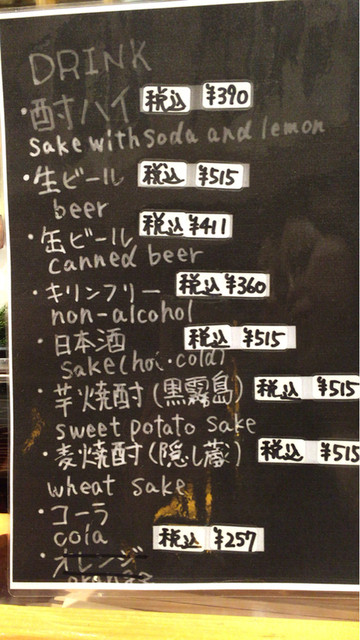 DRINK
・酎ハイ 税込 ¥390
sake with soda and lemon
・生ビール 税込 ¥515
beer
・缶ビール 税込 ¥411
canned beer
・キリンフリー 税込 ¥360
non-alcohol
・日本酒 税込 ¥515
sake(hoi・cold)
・芋焼酎(黒霧島) 税込 ¥515
sweet potato sake
・麦焼酎(隠し蔵) 税込 ¥515
wheat sake
・コーラ
cola 税込 ¥257
・オレンジ